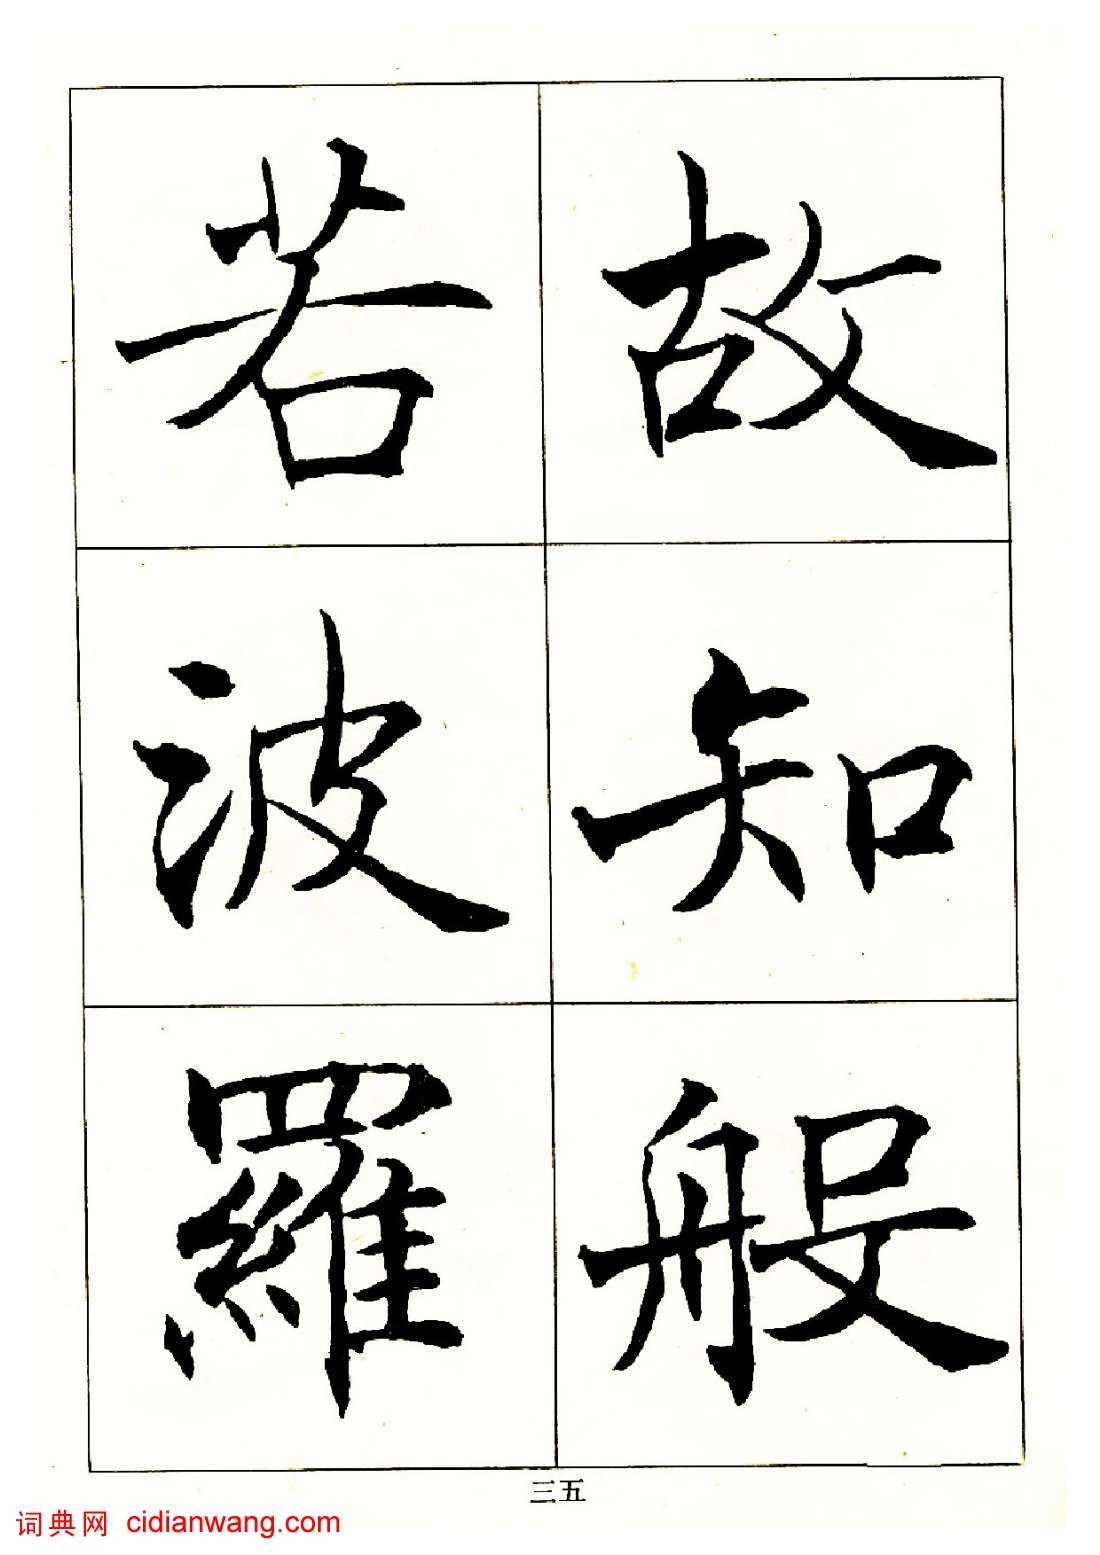 故知般
若波羅
三五
词典网 cidianwang.com